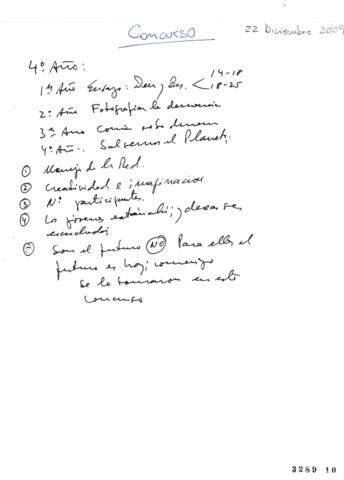 Concurso
22 Diciembre 2009
4º Año:
14-18
1er Año Ensayo: Dem y < 18-25
2º Año Fotografiar la democracia
3er Año Comic sobre democra
4º Año. Salvemos el Planeta,
① Manejo de la Red.
② Creatividad e imaginación
③ Nº participantes.
④ Los jóvenes están ahí; y desean ser
escuchados
⑤ Son el futuro NO Para ellos el
futuro es hoy;
se lo tomaron en este
concurso
3289 10